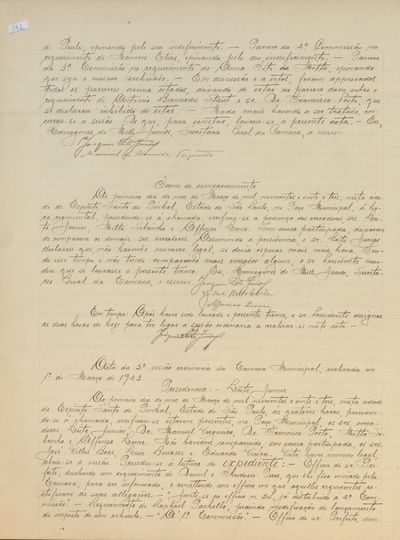 192
de Paula, opinando pelo seu indeferimento. — Parecer da 2ª Commissão no
requerimento de Ramon Elias, opinando pelo seu indeferimento. — Parecer
da 3ª Commissão no requerimento de Anna Rita da Motta, opinando
que seja o mesmo archivado. — Em discussão e a votos, foram approvados
todos os pareceres acima citados, deixando de votar no parecer dado sobre o
requerimento de Antonio Bernardi Staut o sr. Dr. Francisco Porto, que
se declarou inhibido de votar. — Nada mais havendo a ser tratado, en-
cerrou-se a sessão do que, para constar, lavrou-se a presente acta. — Eu,
de Mello Junior, Secretario Geral da Camara, a escrevi.
Termo de comparecimento
Ao primeiro dia do mez de Março de mil novecentos e vinte e tres, nesta cida-
de de Espirito Santo do Pinhal, Estado de São Paulo, no Paço Municipal, á ho-
ra regimental, procedendo-se á chamada, verificou-se a presença dos vereadores srs. Lei-
te Junior, Motta Sobrinho e Affonso Leme. Sem causa participada, deixaram
de comparecer os demais srs. vereadores. Assumindo a presidencia, o sr. Leite Junior
declarou que, não havendo numero legal, se devia esperar mais meia hora. Fin-
do esse tempo e não tendo comparecido mais vereador algum, o sr. Presidente man-
dou que se lavrasse o presente termo. Eu, de Mello Junior, Secreta-
rio Geral da Camara, o escrevi
Affonso Leme
Em tempo: Após haver sido lavrado o presente termo, o sr. Presidente designou
as duas horas de hoje para ter logar a sessão ordinaria a realizar-se nesta data. —
Acta da 3ª sessão ordinaria da Camara Municipal, realizada em
1º de Março de 1923.
Presidencia: — Leite Junior
Ao primeiro dia do mez de Março de mil novecentos e vinte e tres, nesta cidade
de Espirito Santo do Pinhal, Estado de São Paulo, ás quatorze horas, proceden-
do-se á chamada, verificou-se estarem presentes, no Paço Municipal, os srs. verea-
dores Leite Junior, Dr. Manoel Vergueiro, Dr. Francisco Porto, Motta So-
brinho e Affonso Leme. Não haviam comparecido, sem causa participada, os srs.
José Vilas Boas, e Eduardo Vieira. Visto haver numero legal,
abriu-se a sessão. Procedeu-se á leitura do expediente: — Officio do sr. Pre-
feito, devolvendo um requerimento de Daniel e que lhe fora enviado pela
Camara, para ser informado, e remettendo um officio em que aquelles requerentes re-
ctificam as suas allegações. — "Junte-se ao officio nº 31, já distribuido á 2ª Com-
missão". — Requerimento de Raphael Pachella, pedindo modificação de lançamento
de imposto de um vehiculo. — "Á 1ª Commissão". — Officio do sr. Prefeito, dan-